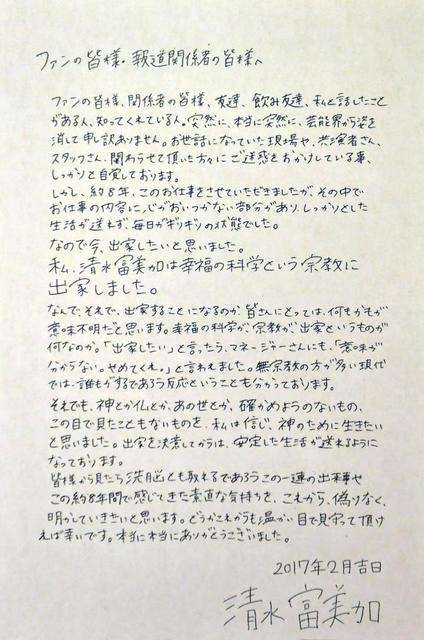 ファンの皆様・報道関係者の皆様へ
ファンの皆様、関係者の皆様、友達、飲み友達、私と話したこと
がある人、知ってくれている人。突然に、本当に突然に、芸能界から姿を
消して申し訳ありません。お世話になっていた現場や、共演者さん、
スタッフさん、関わらせて頂いた方々にご迷惑をおかけしている事、
しっかりと自覚しております。
しかし、約8年、このお仕事をさせていただきましたが、その中で
お仕事の内容に、心がおいつかない部分があり、しっかりとした
生活が送れず、毎日がギリギリの状態でした。
なので今、出家したいと思いました。
私、清水富美加は幸福の科学という宗教に
出家しました。
なんで、それで、出家することになるのか、皆さんにとっては、何もかもが
意味不明だと思います。幸福の科学が、宗教が、出家というものが
何なのか。「出家したい」と言ったら、マネージャーさんにも、「意味が
分からない。やめてくれ。」と言われました。無宗教の方が多い現代
では、誰もがするであろう反応ということも分かっております。
それでも、神とか仏とか、あの世とか、確かめようのないもの、
この目で見たこともないものを、私は信じ、神のために生きたい
と思いました。出家を決意してからは、安定した生活が送れるように
なっております。
皆様から見たら洗脳とも取れるであろうこの一連の出来事や
この約8年間で感じてきた素直な気持ちを、これから、偽りなく、
明かしていきたいと思います。どうかこれからも温かい目で見守って頂け
れば幸いです。本当に本当にありがとうございました。
2017年2月吉日
清水富美加